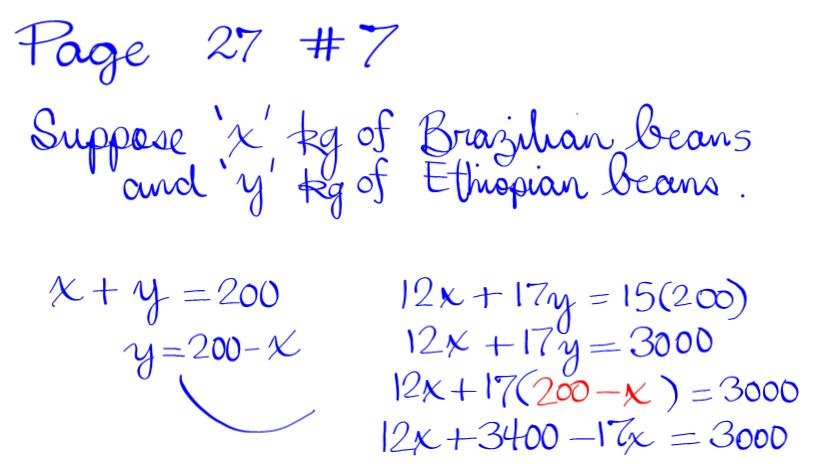 Page 27 #7
Suppose 'x' kg of Brazilian beans
and 'y' kg of Ethiopian beans.
x + y = 200
y = 200 - x
12x + 17y = 15(200)
12x + 17y = 3000
12x + 17(200 - x) = 3000
12x + 3400 - 17x = 3000